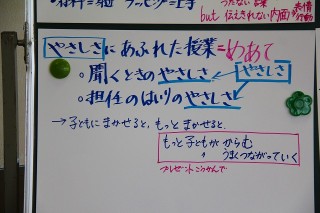 but 伝えきれない内面
やさしさにあふれた授業=めあて
・聞くときのやさしさ ← やさしさ
・担任のはいりのやさしさ
→子どもにまかせると、もっとまかせると、
もっと子どもが からむ
うまくつながっていく